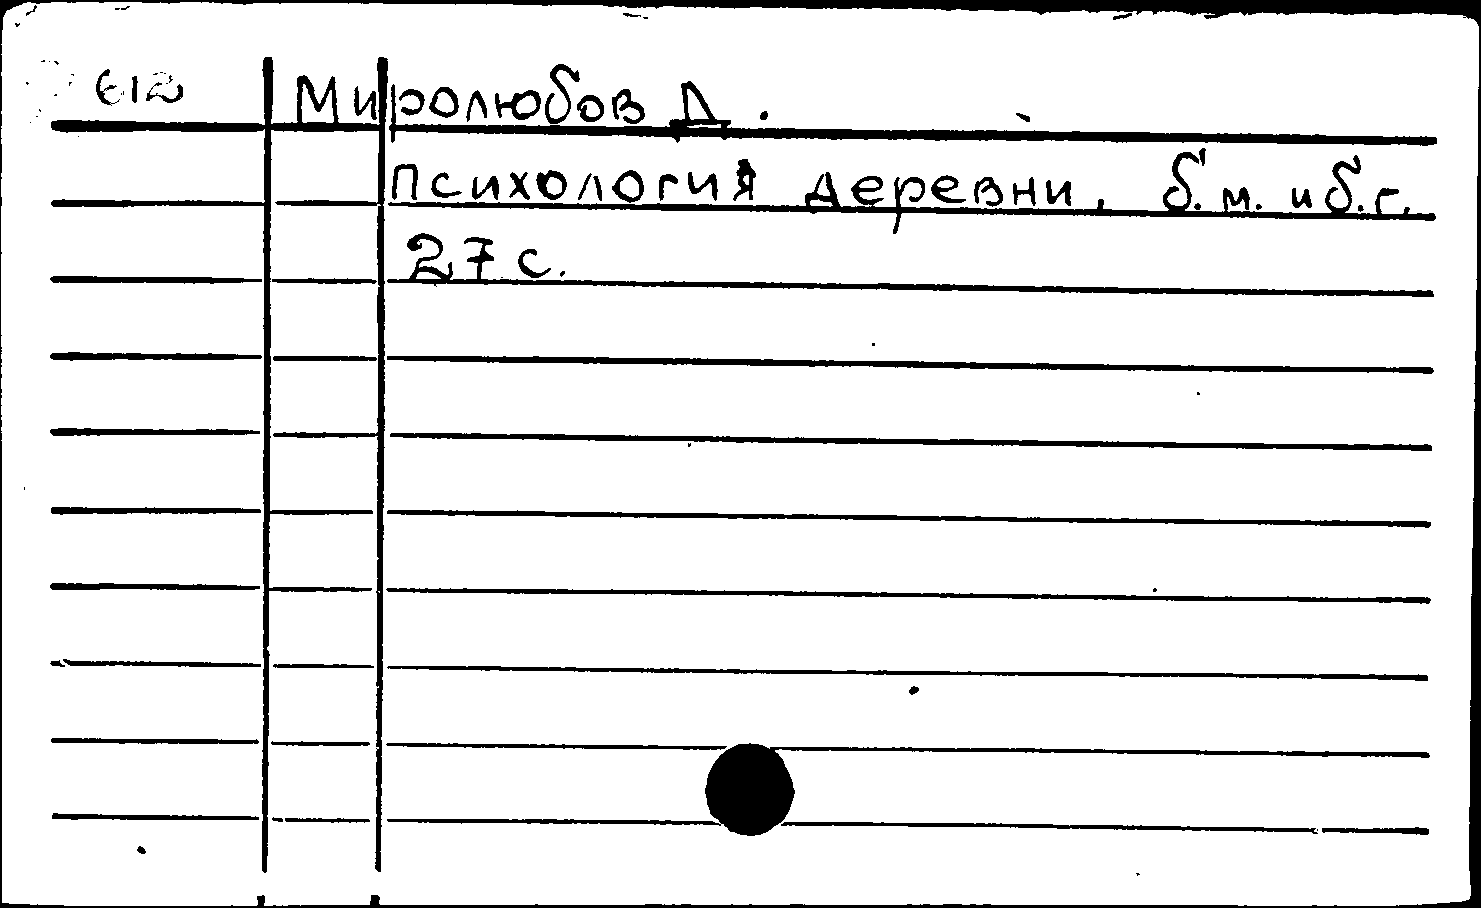 612 Миролюбов Д.
Психология деревни. б.м. и б.г.
27 с.